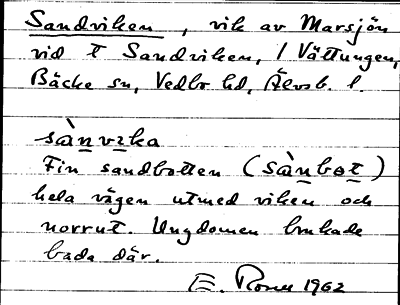 Sandviken, vik av Marsjön
vid t Sandviken, 1 Vättungen,
Bäcke sn, Vedbo hd, Älvsb. l.
sànvɪka
Fin sandbotten (sànbɷt)
hela vägen utmed viken och
norrut. Ungdomen brukade
bada där.
E. 1962